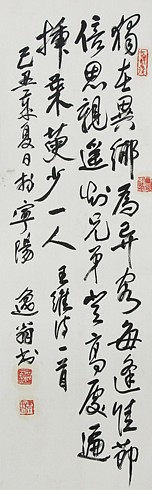 獨在異鄉為异客每逢佳節
倍思親遙知兄弟登高處遍
插茱萸少一人
王維詩一首
己丑年夏日於寧陽
翁书